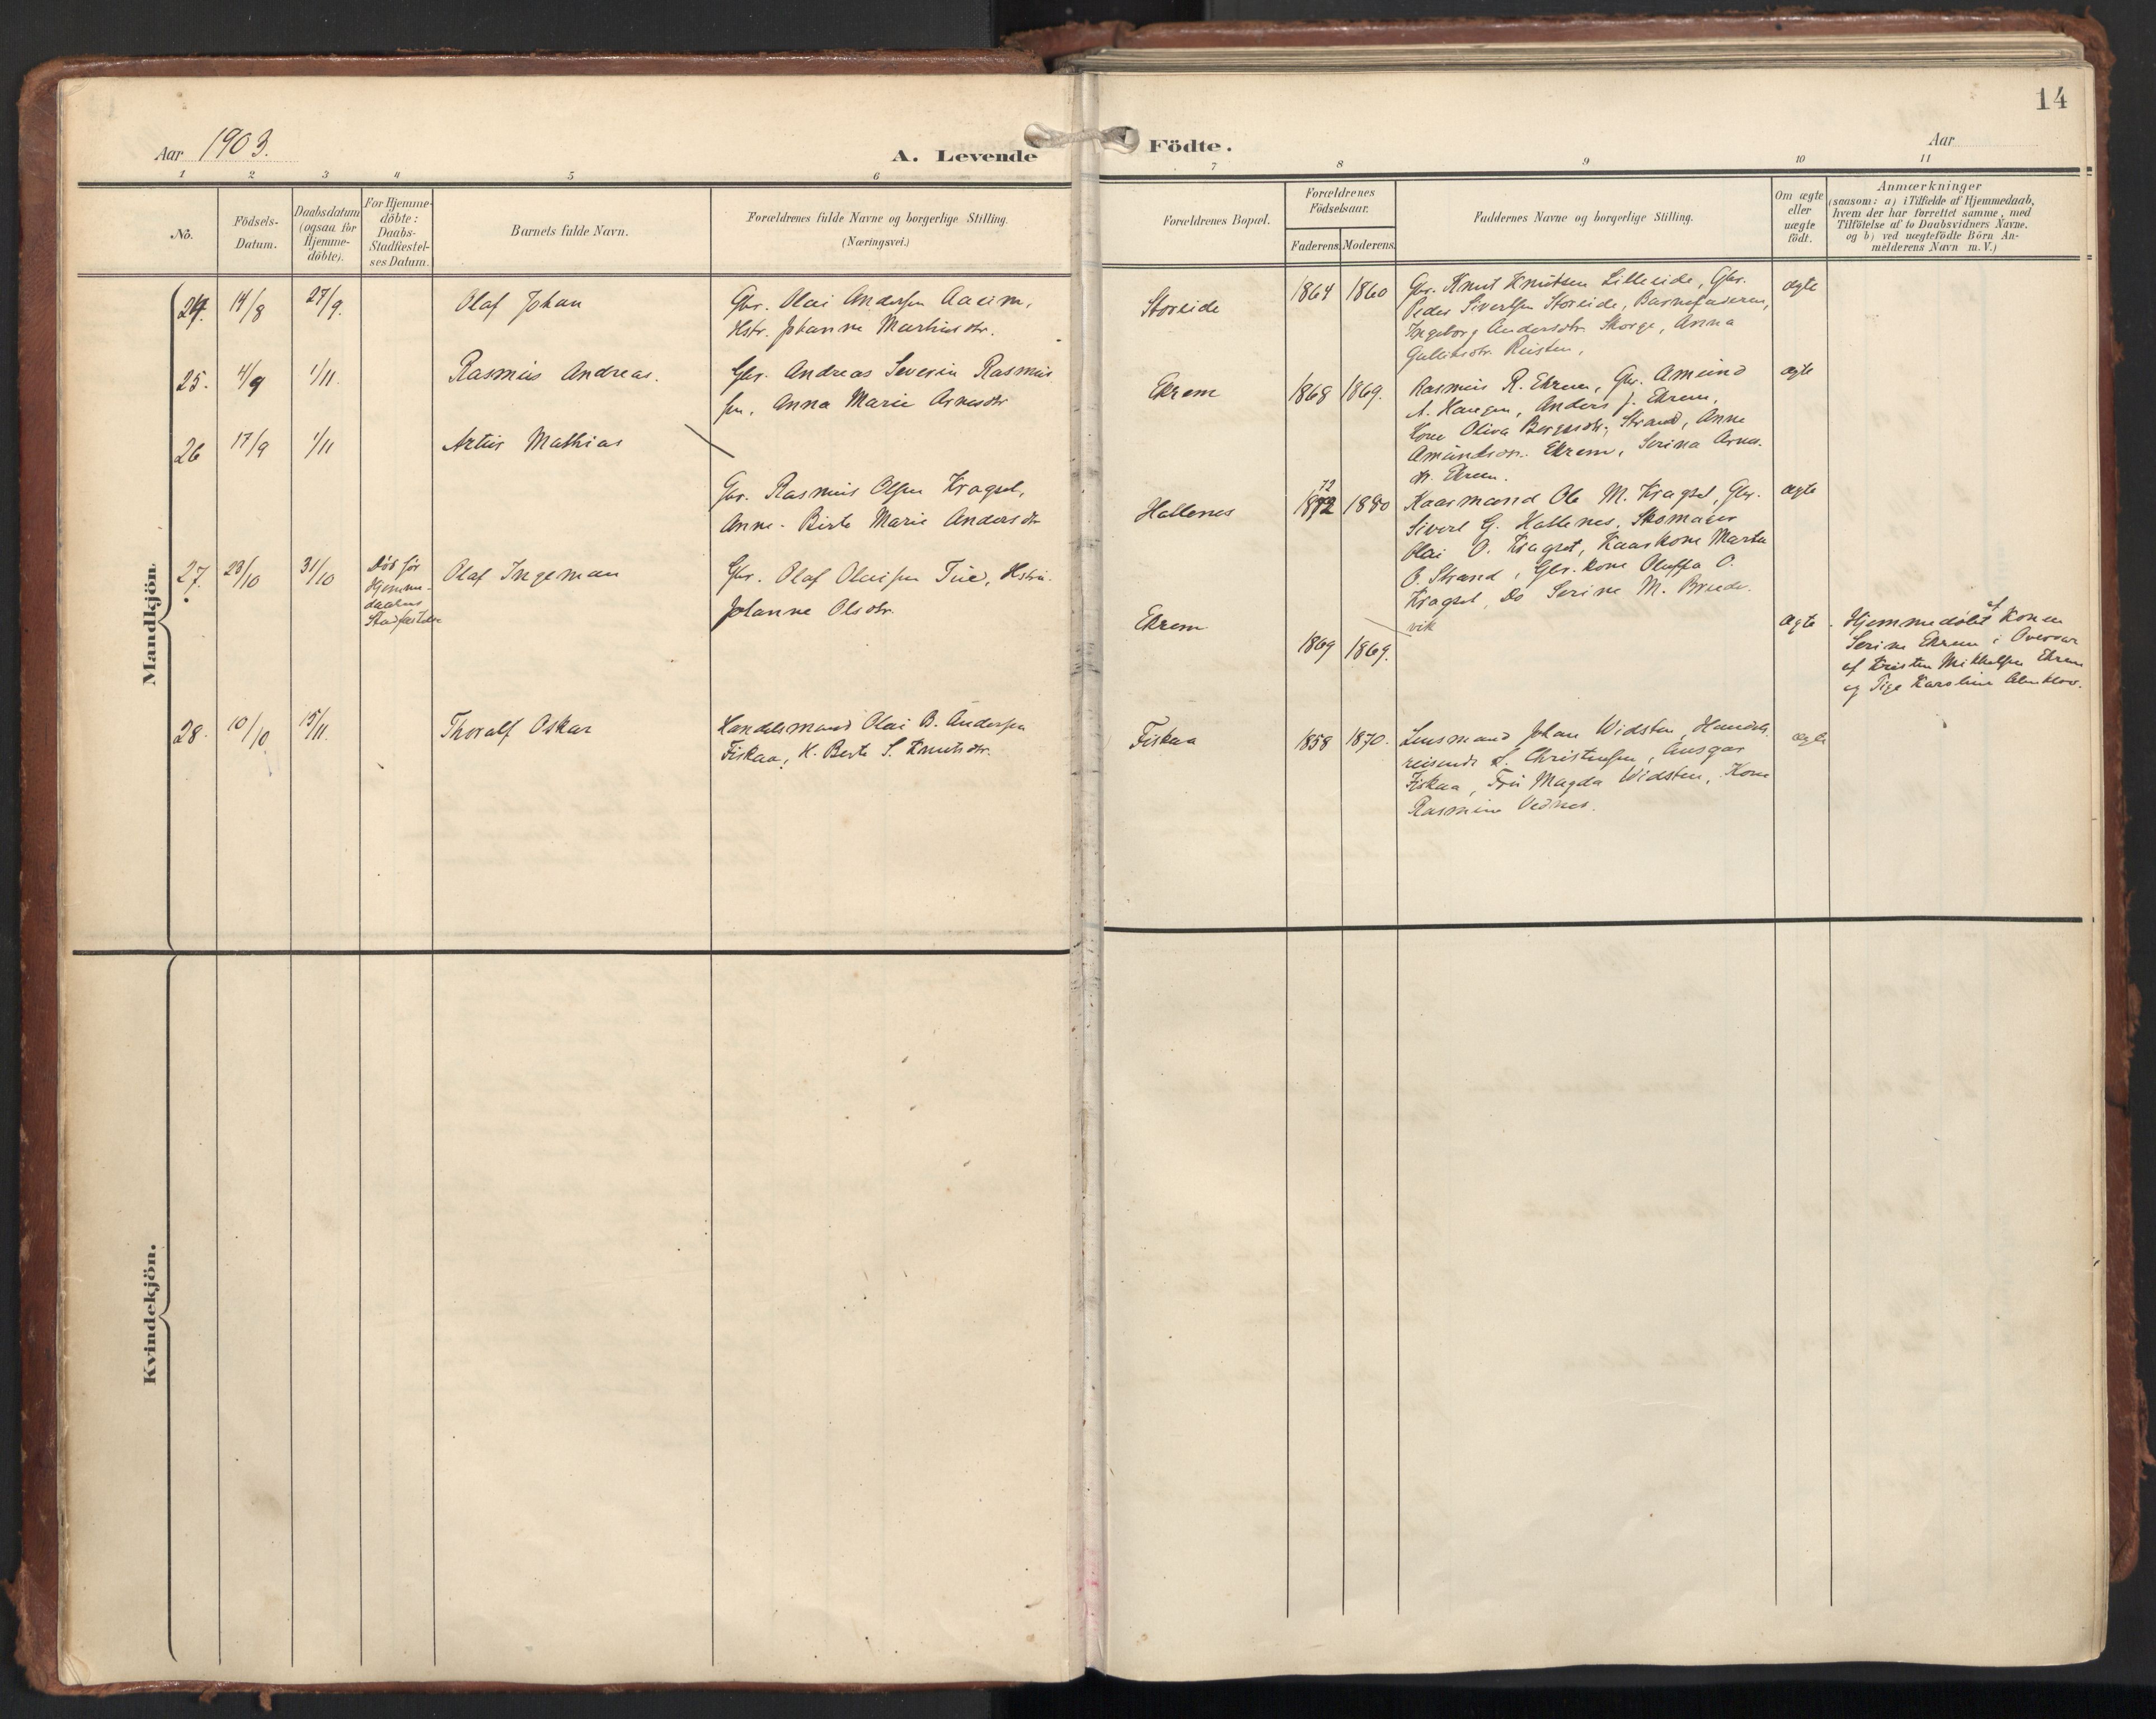 14
Aar 1903.
A. Levende Födte.
Aar
1 2 3 4 5 6 7 8 9 10 11
No.
Födsels-
Datum.
Daabsdatum
(ogsaa for
Hjemme-
döbte).
For Hjemme-
döbte:
Daabs-
Stadfæstel-
ses Datum.
Barnets fulde Navn.
Forældrenes fulde Navne og borgerlige Stilling.
(Næringsvei.)
Forældrenes Bopæl.
Forældrenes
Födselsaar.
Faderens. Moderens.
Faddernes Navne og borgerlige Stilling.
Om ægte
eller
uægte
födt.
Anmærkninger
(saasom: a) i Tilfælde af Hjemmedaab,
hvem der har forrettet samme, med
Tilföielse af to Daabsvidners Navne.
og b) ved uægtefödte Börn An-
melderens Navn m. V.)
Mandkjön.
24. 14/8 27/9. Olaf Johan
Gbr. Olai Andersen Aaeim,
Hstr. Johanne Marhiusdtr.
Storeide
1864 1860
Gbr. Knut Knutsen Lilleeide, Gbr.
Peder Sivertsen Storeide, Barnefaderen,
Ingeborg Andersdtr. Skorge, Anna
Gullikdtr. Reisten,
ægte
25. 4/9 1/11. Rasmus Andreas.
Gbr. Andreas Severin Rasmus
sen, Anna Marie Arnesdtr
Ekrem
1868 1869.
Rasmus R. Ekrem, Gbr. Amund
A. Haugen, Anders J. Ekrem,
Kone Oliva Bergesdtr. Strand, Anne
Amundsdtr. Ekrem, Serina Arnes.
dt. Ekrem.
ægte
26 17/9 1/11 Artur Mathias
Gbr. Rasmus Olsen Kragset,
Anne-Birte Marie Andersdtr
Hallenes
72
1872 1880
Kaarmand Ole M. Kragset, Gbr.
Sivert G. Hallenes, Skomager
Olai O. Kragset, Kaarkone Marta
O. Strand, Gbr. kone Oluffa O.
Kragset, Do Serine M. Breide-
vik
ægte
27. 23/10 31/10
Död før
Hjemme-
daabens
Stadfæstelse
Olaf Ingeman
Gbr. Olaf Olaisen Tue, Hstru.
Johanne Olsdtr.
Ekrem
1869 1869.
ægte
Hjemmedöbt af Konen
Serine Ekrem i Overvær
af Kristen Mikkelsen Ekrem
og Pige Karoline Almklov.
28. 10/10 15/11. Thoralf Oskar
Handelsmand Olai B. Andersen
Fiskaa, H. Berte S. Knutsdtr.
Fiskaa
1858 1870.
Lensmand Johan Widsten, Handels.
reisende S. Christensen, Ansgar
Fiskaa, Fru Magda Widsten, Kone
Rasmine Vednes.
ægte
Kvindekjön.